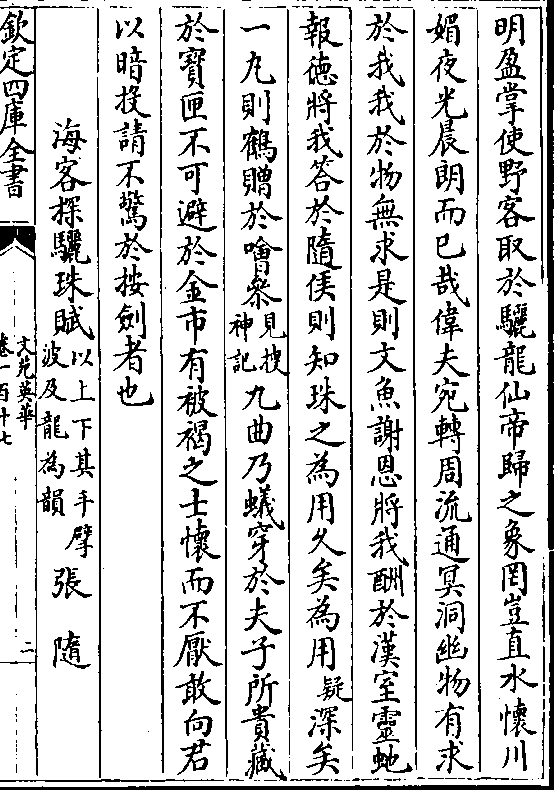 明盈掌使野客取於驪龍仙帝歸之象罔豈直水懷川
媚夜光晨朗而已哉偉夫宛轉周流通冥洞幽物有求
於我我於物無求是則文魚謝恩將我酬於漢室靈虵
報徳將我答於隨侯則知珠之為用久矣為用疑深矣
一丸則鶴贈於噲叅見搜神記九曲乃蟻穿於夫子所貴藏
於寶匣不可避於金市有被褐之士懷而不厭敢向君
以暗投請不驚於按劍者也
海客探驪珠賦以上下其手擘波及龍為韻張隨
欽定四庫全書
文苑英華
卷一百十七
二